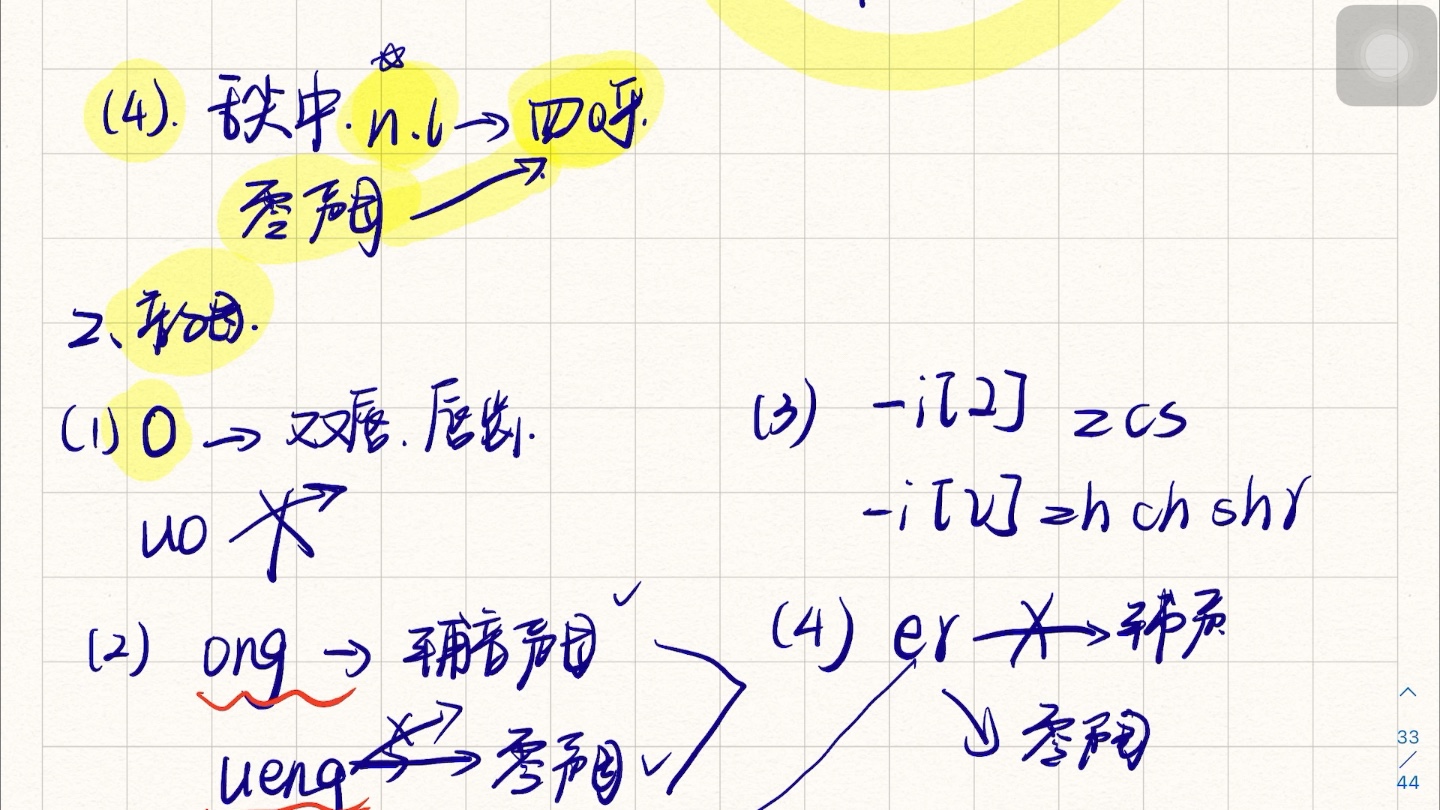 (4). 舌尖中. n.l → 四呼.
零声母 →
2、韵母.
(1) O → 双唇. 唇齿.
uo
(2) ong → 辅音声母 ✓
ueng → 零声母 ✓
(3) -i[ɿ] z c s
-i[ʅ] zh ch sh r
(4) er → 辅
零声母
33
/
44